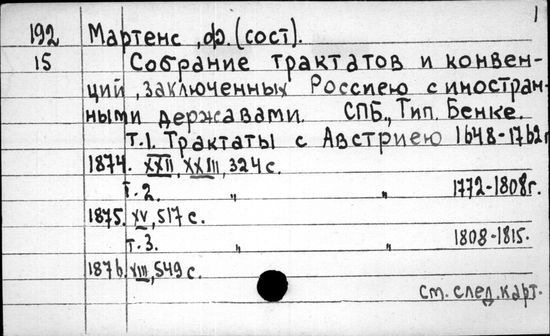 1
192 Мартенс, Ф. (сост).
15 Собрание трактатов и конвен-
ций, заключенных Россиею с иностран-
ными державами. СПБ., Тип. Бенке.
т.1. Трактаты с Австриею 1648-1762г
1874. XXII, XXIII, 324 с.
т.2. „ „ 1772-1808г.
1875. XV, 517 с.
т.3. „ „ 1808-1815.
1876. XIII, 549 с.
см. след. карт.